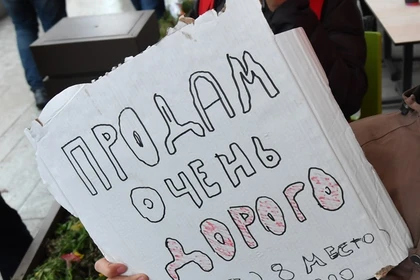 ПРОДАМ
ОЧЕНЬ
ДОРОГО
) 8 МЕСТО)